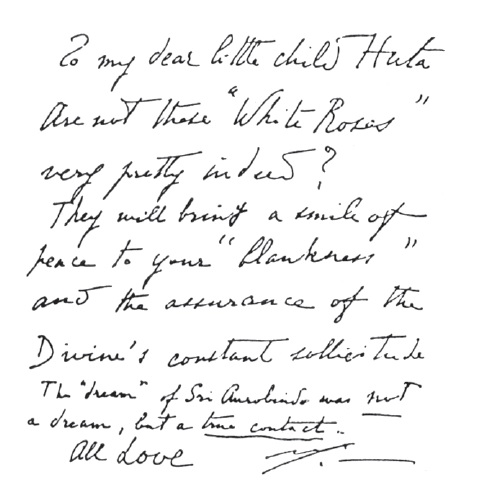 To my dear little child Huta
Are not these "White Roses"
very pretty indeed?
They will bring a smile of
peace to your "blankness"
and the assurance of the
Divine's constant sollicitude
The "dream" of Sri Aurobindo was not
a dream, but a true contact..
All Love